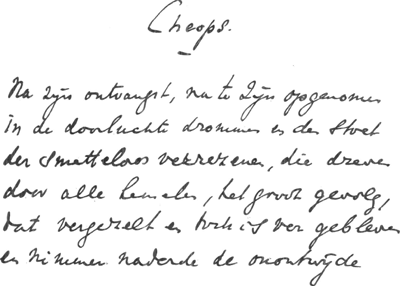 Cheops.
Na zijn ontvangst, na te zijn opgenomen
in de doorluchte drommen en den stoet
der smetteloos verrezenen, die dreven
door alle hemelen, het groot gevolg,
dat vergezelt en toch is ver gebleven
en nimmer naderde de onontwijde